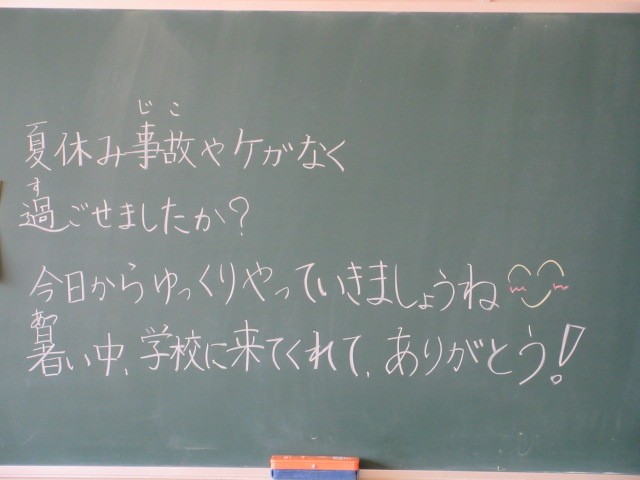 夏休み事故やケガなく
過ごせましたか?
今日からゆっくりやっていきましょうね
暑い中、学校に来てくれて、ありがとう!
じこ
す
あつ